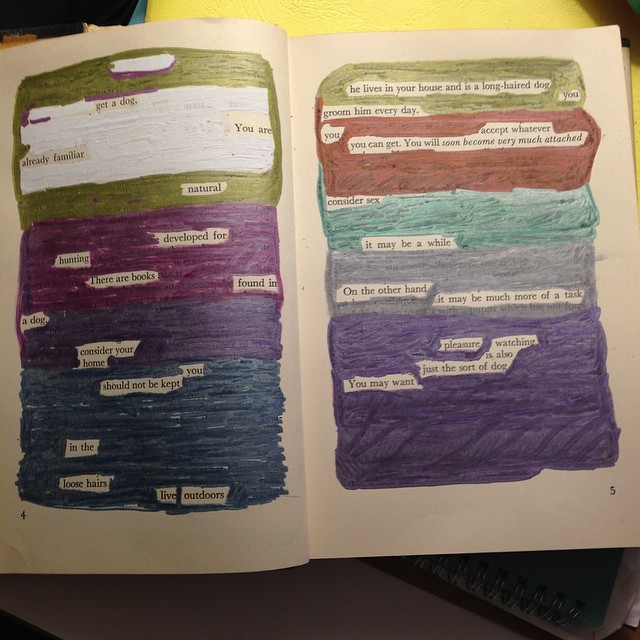 get a dog,
You are
already familiar
natural
developed for
hunting
There are books
found in
a dog,
consider your
home
you
should not be kept
in the
loose hairs
live outdoors
4
he lives in your house and is a long-haired dog
you
groom him every day.
you
accept whatever
you can get. You will soon become very much attached
consider sex
it may be a while
On the other hand,
it may be much more of a task
pleasure watching
is also
just the sort of dog
You may want
5